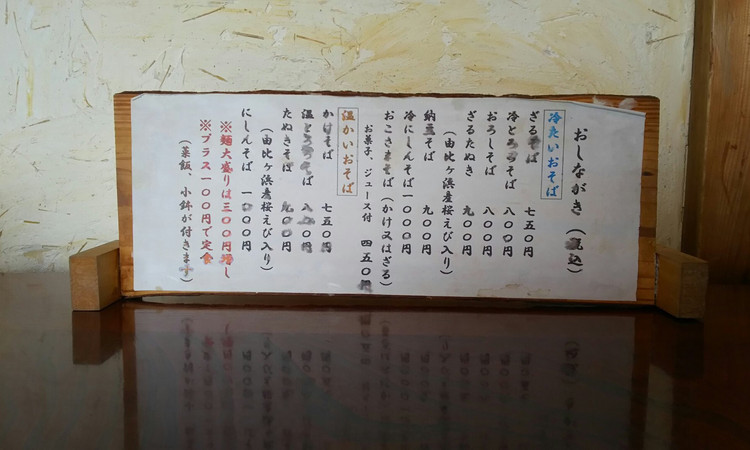 おしながき(税込)
冷たいおそば
ざるそば 七五〇円
冷とろろそば 八〇〇円
おろしそば 八〇〇円
ざるたぬき 九〇〇円
(由比ヶ浜産桜えび入り)
納豆そば 九〇〇円
冷にしんそば一〇〇〇円
おこさまそば(かけ又はざる)
お菓子、ジュース付 四五〇円
温かいおそば
かけそば 七五〇円
温とろろそば 八〇〇円
たぬきそば 九〇〇円
(由比ヶ浜産桜えび入り)
にしんそば 一〇〇〇円
※麺大盛りは三〇〇円増し
※プラス一〇〇円で定食
(菜飯、小鉢が付きます)